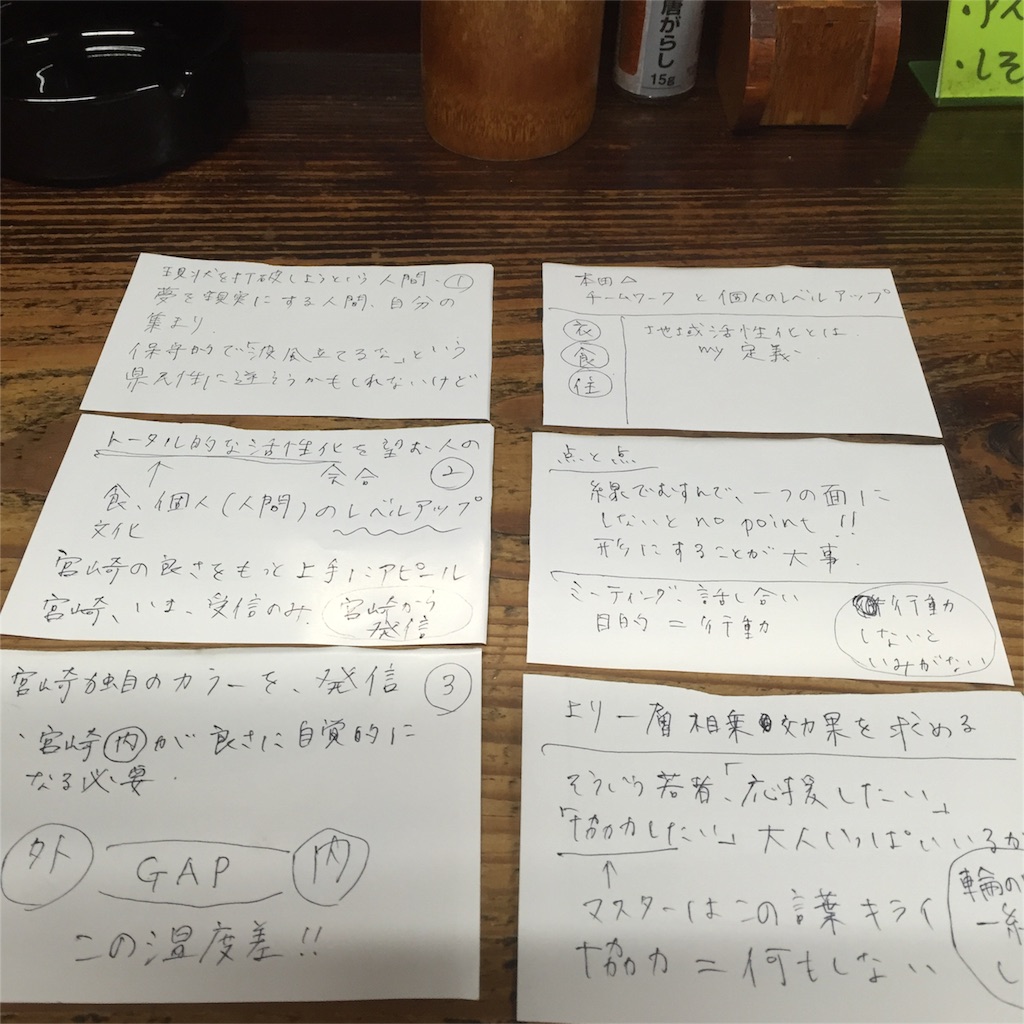 唐がらし
15g
・しそ
現状を打破しようという人間、①
夢を現実にする人間、自分の
集まり.
保守的で「波風立てるな」という
県民性に逆そうかもしれないけど
トータル的な活性化を望む人の
会合 ②
食、個人(人間)のレベルアップ
文化
宮崎の良さをもっと上手にアピール
宮崎、いま、受信のみ. 宮崎から
発信
宮崎独自のカラーを、発信 ③
、宮崎内が良さに自覚的に
なる必要.
外 GAP 内
この温度差!!
本田△
チームワークと個人のレベルアップ
衣
食
住
地域活性化とは
my 定義.
点と点
線でむすんで、一つの面に
しないと no point!!
形にすることが大事.
ミーティング、話し合い
目的=行動
行動
しないと
いみがない
より一層相乗効果を求める
そういう若者、「応援したい」
「協力したい」大人いっぱいいるが
↑
マスターはこの言葉キライ
協力=何もしない
輪の
一緒
し